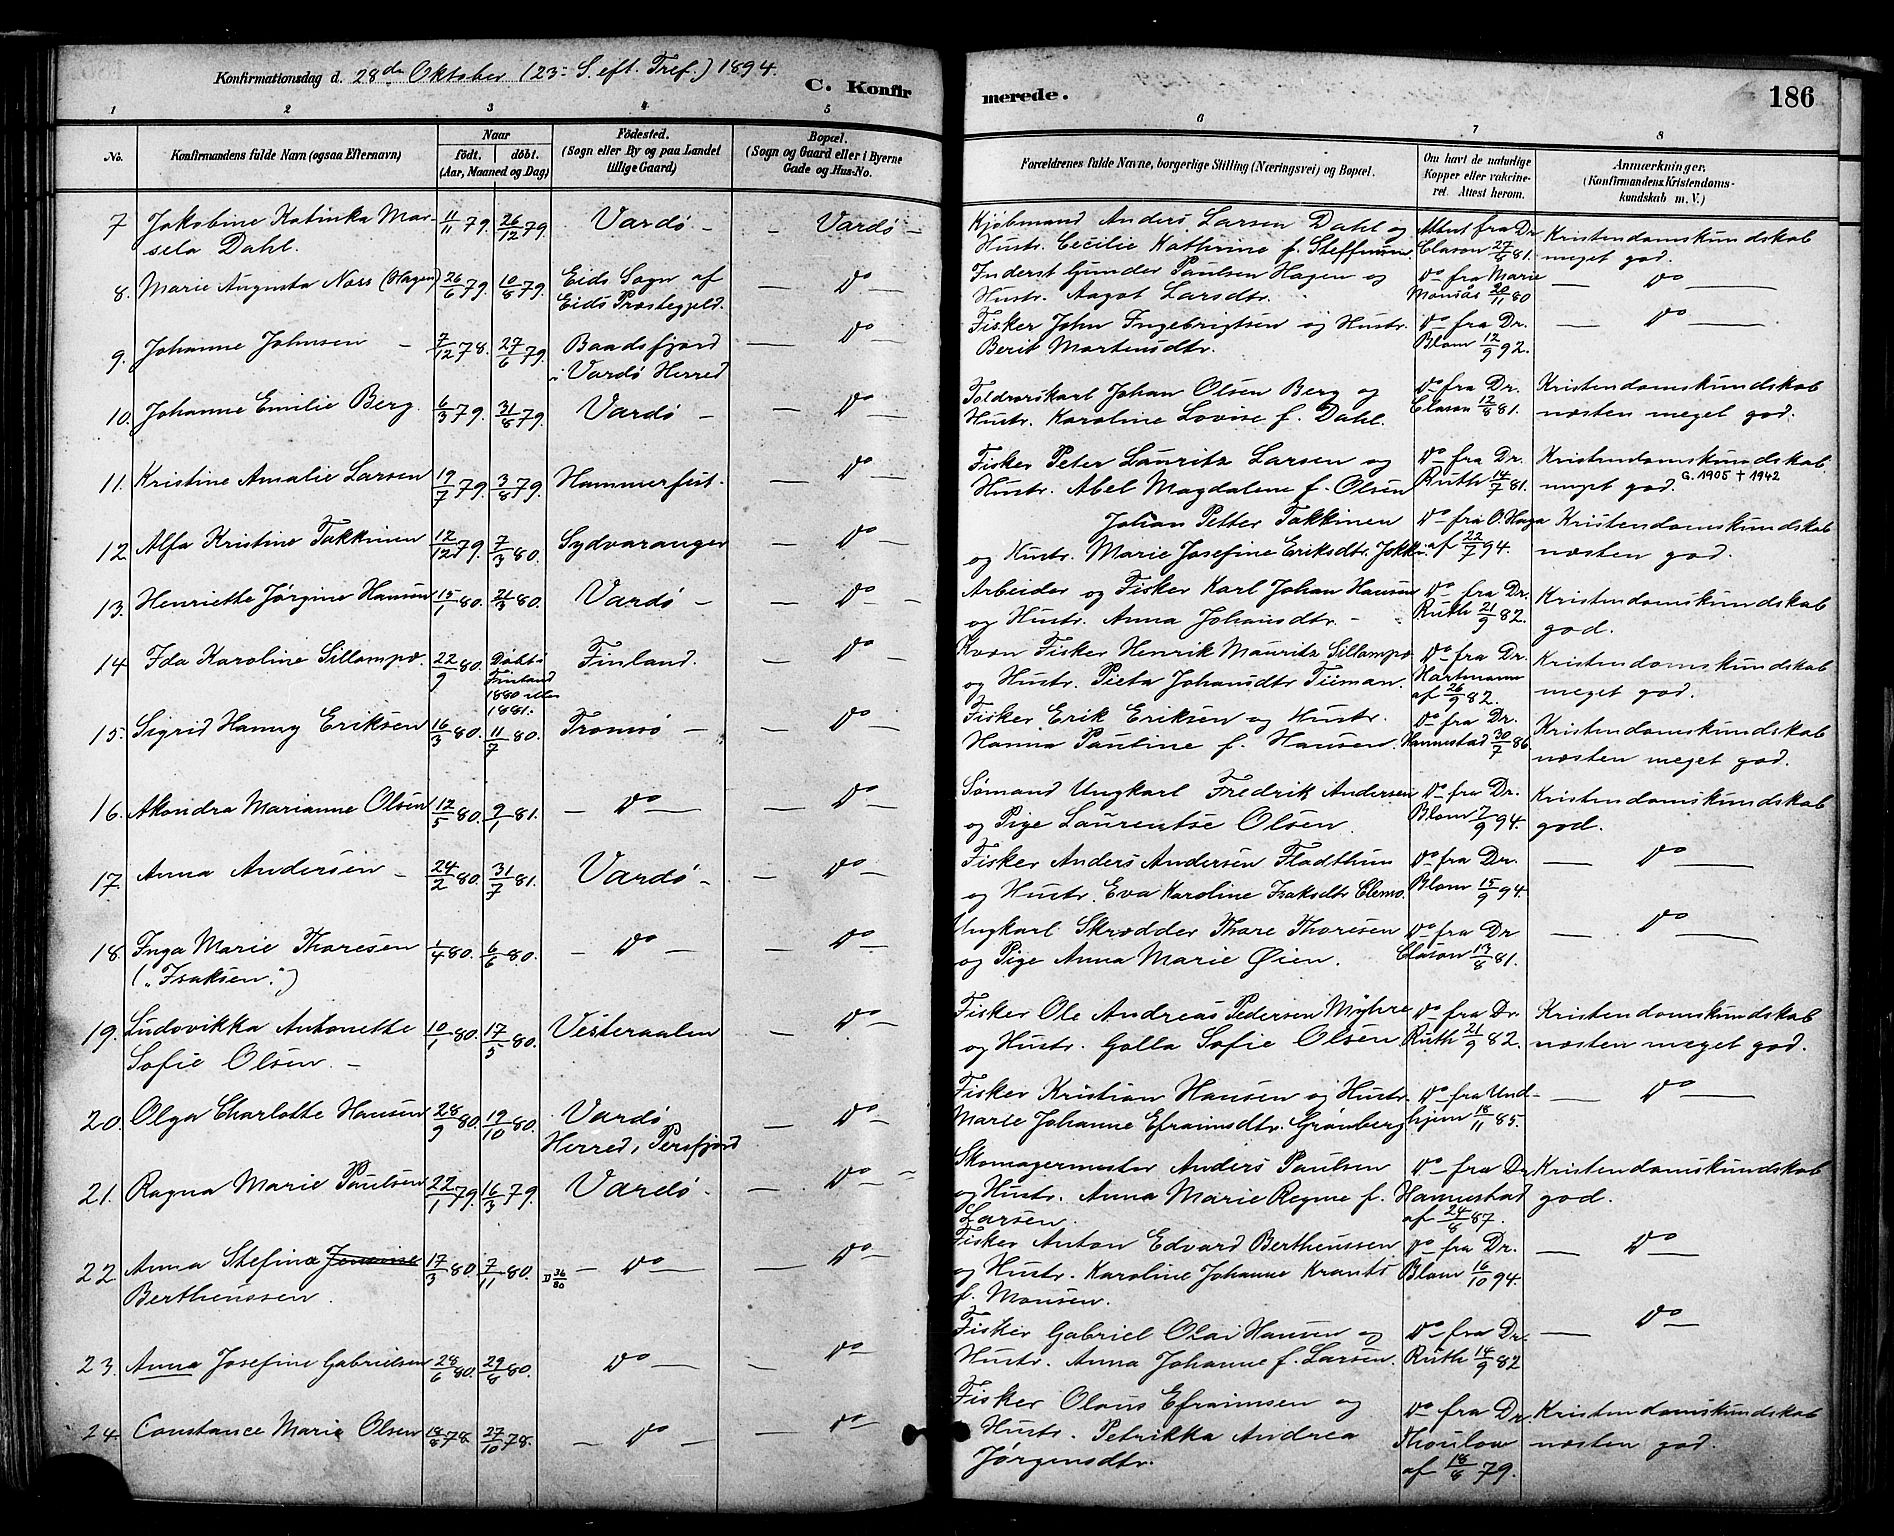 Konfirmationsdag d. 28de Oktober (23. S. eft. Tref.) 1894.
C. Konfirmerede.
186
1 2 3 4 5 6 7 8
No.
Konfirmandens fulde Navn (ogsaa Efternavn)
Naar
født. døbt.
(Aar, Maaned og Dag)
Fødested.
(Sogn eller By og paa Landet
tillige Gaard)
Bopæl.
(Sogn og Gaard eller i Byerne
Gade og Hus-No.
Forældrenes fulde Navne, borgerlige Stilling (Næringsvei) og Bopæl.
Om havt de naturlige
Kopper eller vakcine-
ret. Attest herom.
Anmærkninger.
(Konfirmandens Kristendoms-
kundskab m. V.)
7 Jakobine Katinka Mar- 11/11 79. 26/12 79. Vardø - - Vardø - Kjøbmand Anders Larsen Dahl og Attest fra Dr. Kristendomskundskab
sela Dahl. Hustr. Cecilie Kathrine f. Steffensen Clason 27/6 81. meget god.
8. Marie Augusta Næss (Hagen) 26/6 79. 10/8 79. Eids Sogn af - Do - Inderst Gunder Paulsen Hagen og Do fra Marie - Do -
Eids Præstegjeld. Hustr. Aagot Larsdtr. Monsås 20/11 80
9. Johanne Johnsen - 7/12 78. 27/6 79. Baadsfjord - Do - Fisker John Ingebrigtsen og Hustr. Do fra Dr. - Do -
i Vardø Herred Berit Mortensdtr. Blom 12/9 92.
10. Johanne Emilie Berg. 6/3 79. 31/8 79. Vardø - - Do - Toldrorskarl Johan Olsen Berg og Do fra Dr. Kristendomskundskab
Hustr. Karoline Lovise f. Dahl. Clason 12/8 81. næsten meget god.
11. Kristine Amalie Larsen 19/7 79. 3/8 79. Hammerfest. - Do - Fisker Peter Lauritz Larsen og Do fra Dr. Kristendomskundskab
Hustr. Abel Magdalene f. Olsen Ruth 14/7 81. meget god. G. 1905 † 1942
12 Alfa Kristine Takkinen 12/12 79. 7/3 80. Sydvaranger - Do - Johan Petter Takkinen Do fra O. Haga Kristendomskundskab
og Hustr. Marie Josefine Eriksdtr. af 22/7 94. næsten god.
13. Henriette Jørgine Hansen 15/1 80. 21/3 80. Vardø - - Do - Arbeider og Fisker Karl Johan Hansen Do fra Dr. Kristendomskundskab
og Hustr. Anna Johansdtr. - Ruth 21/9 82. god.
14 Ida Karoline Sillampæ. 22/9 80. Døbt i Finland 1880 eller 1881. Finland. - Do - Kvæn Fisker Henrik Mauritz Sillampæ Do fra Dr. Kristendomskundskab
og Hustr. Pieta Johansdtr Tiiman. Hartmann af 26/9 82. meget god.
15. Sigrid Hanny Eriksen 16/3 80. 11/7 80. Tromsø - - Do - Fisker Erik Eriksen og Hustr. Do fra Dr. Kristendomskundskab
Hanna Pauline f. Hansen. Hannestad 30/7 86. næsten meget god.
16. Marianne Olsen 12/5 80. 9/1 81. - Do - - Do - Sømand Ungkarl Fredrik Andersen Do fra Dr. Kristendomskundskab
og Pige Laurentse Olsen. Blom 7/9 94. god.
17. Anna Andersen - 24/2 80. 31/7 81. Vardø - - Do - Fisker Anders Andersen Do fra Dr. - Do -
og Hustr. Eva Karoline Isaksdtr. Blom 15/9 94.
18. Inga Marie Thoresen 1/4 80. 6/6 80. - Do - - Do - Ungkarl Skrædder Thore Thoresen Do fra Dr - Do -
("Isaksen.") og Pige Anna Marie Øien. Clason 13/8 81.
19. Ludovikka Antonette 10/1 80. 17/5 80. Vesteraalen - Do - Fisker Ole Andreas Pedersen Myhre Do fra Dr Kristendomskundskab
Sofie Olsen. - og Hustr. Golla Sofie Olsen Ruth 21/9 82. næsten meget god.
20. Olga Charlotte Hansen 28/9 80. 19/10 80. Vardø - Do - Fisker Kristian Hansen og Hustr. Do fra Und- - Do -
Herred, Persfjord Marie Johanne Efraimsdtr. Grønberg hjem 18/11 85.
21. Ragna Marie Paulsen 22/1 79. 16/3 79. Vardø - - Do - Skomagermester Anders Paulsen Do fra Dr Kristendomskundskab
og Hustr. Anna Marie Regine f. Hannestad god.
Larsen. af 24/8 87.
22 Anna Stefina Berthenssen. 17/3 80. 7/11 80. D 36/80 - Do - - Do - Fisker Anton Edvard Berthenssen Do fra Dr. - Do -
og Hustr. Karoline Johanne Krantz Blom 16/10 94.
f. Monsen.
23. Anna Josefine Gabrielsen 28/6 80. 29/8 80. - Do - - Do - Fisker Gabriel Olai Hansen og Do fra Dr. - Do -
Hustr. Anna Johanne f. Larsen. Ruth 14/9 82
24. Constance Marie Olsen 18/8 78. 27/10 78. - Do - - Do - Fisker Olaus Efraimsen og Do fra Dr Kristendomskundskab
Hustr. Petrikka Andrea Thoulow næsten god.
Jørgensdtr. af 18/8 79.